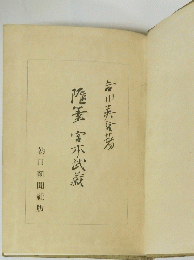 吉川英治著
随筆 宮本武蔵
朝日新聞社版